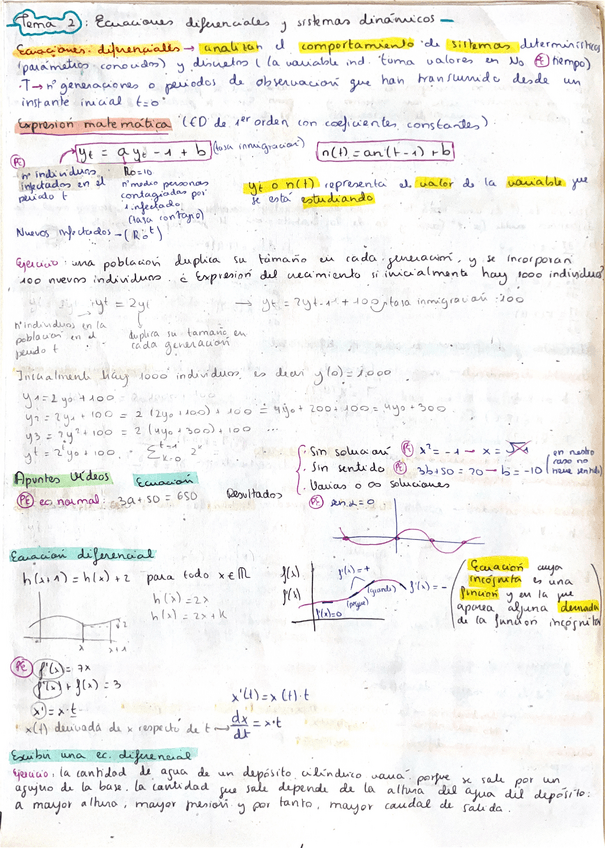 Tema 2: Ecuaciones diferenciales y sistemas dinámicos
Ecuaciones diferenciales → analizan el comportamiento de sistemas determinísticos
(parámetros conocidos) y discretos (la variable ind. toma valores en No PE tiempo)
T → nº generaciones o periodos de observación que han transcurrido desde un
instante inicial t=0
Expresión matemática (ED de 1er orden con coeficientes constantes)
yt = a yt-1 + b (tasa inmigración)
n(t) = an(t-1) + b
PE
nº individuos infectados en el periodo t
Ro=10
nº medio personas contagiadas por 1 infectado (tasa contagio)
yt o n(t) representa el valor de la variable que
se está estudiando
Nuevos infectados → (Ro^t)
Ejercicio: una población duplica su tamaño en cada generación, y se incorporan
100 nuevos individuos. ¿Expresión del crecimiento si inicialmente hay 1000 individuos?
→ yt = 2y
→ yt = 2yt-1 + 100 tasa inmigración: 100
nº individuos en la población en el periodo t
duplica su tamaño en cada generación
Inicialmente hay 1000 individuos, es decir y(0) = 1.000
y1 = 2y0 + 100
y2 = 2y1 + 100 = 2(2y0 + 100) + 100 = 4y0 + 200 + 100 = 4y0 + 300
y3 = 2y2 + 100 = 2(4y0 + 300) + 100 ...
yt = 2^t y0 + 100 · Σ k=0 t-1 2^k
Apuntes vídeos
Ecuación
PE ec. normal: 3a + 50 = 650
Resultados
Sin solución PE x² = -1 → x = √-1
Sin sentido PE 3b + 50 = 20 → b = -10 (en nuestro caso no tiene sentido)
Varias o ∞ soluciones
PE sen α = 0
Ecuación diferencial
h(x+1) = h(x) + 2 para todo x ∈ ℝ
h(x) = 2x
h(x) = 2x + k
2
x
x+1
f(x)
f'(x)
f'(x) = +
(grande)
f'(x) = -
f'(x) = 0
Ecuación cuya
incógnita es una
función y en la que
aparece alguna derivada
de la función incógnita
PE f'(x) = 7x
f'(x) + f(x) = 3
x' = x·t
x(t) derivada de x respecto de t →
x'(t) = x(t)·t
dx/dt = x·t
Escribir una ec. diferencial
Ejercicio: la cantidad de agua de un depósito cilíndrico varía porque se sale por un
agujero de la base. La cantidad que sale depende de la altura del agua del depósito:
a mayor altura, mayor presión y por tanto, mayor caudal de salida.